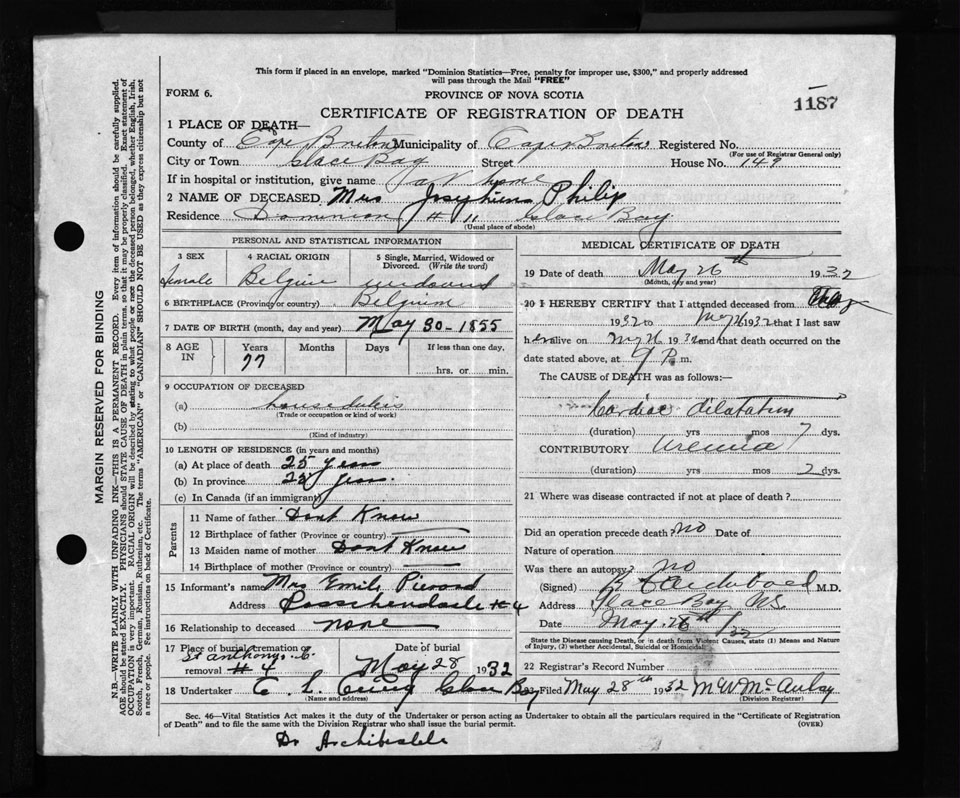 This form if placed in an envelope, marked "Dominion Statistics—Free, penalty for improper use, $300," and properly addressed
will pass through the Mail "FREE"
FORM 6.
PROVINCE OF NOVA SCOTIA
1187
CERTIFICATE OF REGISTRATION OF DEATH
1 PLACE OF DEATH—
County of Cape Breton Municipality of Cape Breton Registered No.
(For use of Registrar General only)
City or Town Glace Bay Street House No. 149
If in hospital or institution, give name at home
2 NAME OF DECEASED Mrs Philip
Residence Dominion # 11 Glace Bay
(Usual place of abode)
PERSONAL AND STATISTICAL INFORMATION
3 SEX
4 RACIAL ORIGIN
5 Single, Married, Widowed or Divorced. (Write the word)
female Belgium widowed
6 BIRTHPLACE (Province or country) Belgium
7 DATE OF BIRTH (month, day and year) May 30-1855
8 AGE IN
Years
Months
Days
If less than one day.
77
hrs. or min.
9 OCCUPATION OF DECEASED
(a)
(Trade of occupation or kind of work)
(b)
(Kind of industry)
10 LENGTH OF RESIDENCE (in years and months)
(a) At place of death 25 years
(b) In province years
(c) In Canada (if an immigrant)
Parents
11 Name of father Dont Know
12 Birthplace of father (Province or country)
13 Maiden name of mother Dont Know
14 Birthplace of mother (Province or country)
15 Informant's name Mrs Emile Pierard
Address Passchendaele # 4
16 Relationship to deceased none
17 Place of burial, cremation or removal
St Anthonys C.
# 4
Date of burial
May 28 1932
18 Undertaker Glace Bay
(Name and address)
MEDICAL CERTIFICATE OF DEATH
19 Date of death May 26th 1932
(Month, day and year)
20 I HEREBY CERTIFY that I attended deceased from May
1932 to May 26 1932 that I last saw
her alive on May 26 1932 and that death occurred on the
date stated above, at 9 P. m.
The CAUSE of DEATH was as follows:—
Cardiac dilatation
(duration) yrs mos 7 dys.
CONTRIBUTORY Uremia
(duration) yrs mos 2 dys.
21 Where was disease contracted if not at place of death ?
Did an operation precede death no Date of
Nature of operation
Was there an autopsy? no
(Signed) Archibald M.D.
Address Glace Bay N.S.
Date May 28th / 32
State the Disease causing Death, or in death from Violent Causes, state (1) Means and Nature
of Injury, (2) whether Accidental, Suicidal or Homicidal.
22 Registrar's Record Number
Filed May 28th 1932
(Division Registrar)
Sec. 46—Vital Statistics Act makes it the duty of the Undertaker or person acting as Undertaker to obtain all the particulars required in the "Certificate of Registration
of Death" and to file the same with the Division Registrar who shall issue the burial permit.
(OVER)
MARGIN RESERVED FOR BINDING
N.B.—WRITE PLAINLY WITH UNFADING INK—THIS IS A PERMANENT RECORD. Every item of information should be carefully supplied.
AGE should be stated EXACTLY. PHYSICIANS should STATE CAUSE OF DEATH in plain terms, so that it may be properly classified. Exact statement of
OCCUPATION is very important. RACIAL ORIGIN will be described by stating to what people or race the deceased person belonged, whether English, Irish,
Scotch, French, German, Russian, Ruthenian, etc. The terms "AMERICAN" or "CANADIAN" SHOULD NOT BE USED as they express citizenship but not
a race or people. See instructions on back of Certificate.